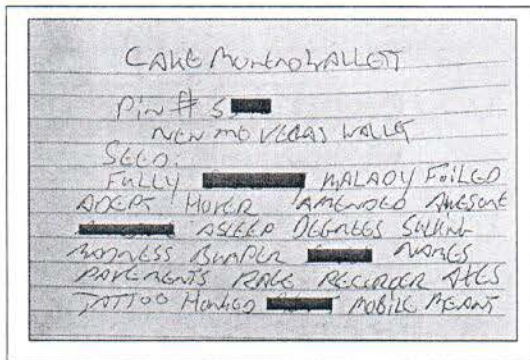 CAKE MONERO WALLETT
PIN # 5
NEW MO VEGAS WALLET
SEED:
FULLY MALADY FOILED
ADEPT HOVER AMENDED AWESOME
ASLEEP DEGREES SULKING
MADNESS BUMPER NAMES
PAVEMENTS RAGE RECORDER AXES
TATTOO HONKED MOBILE MEANT